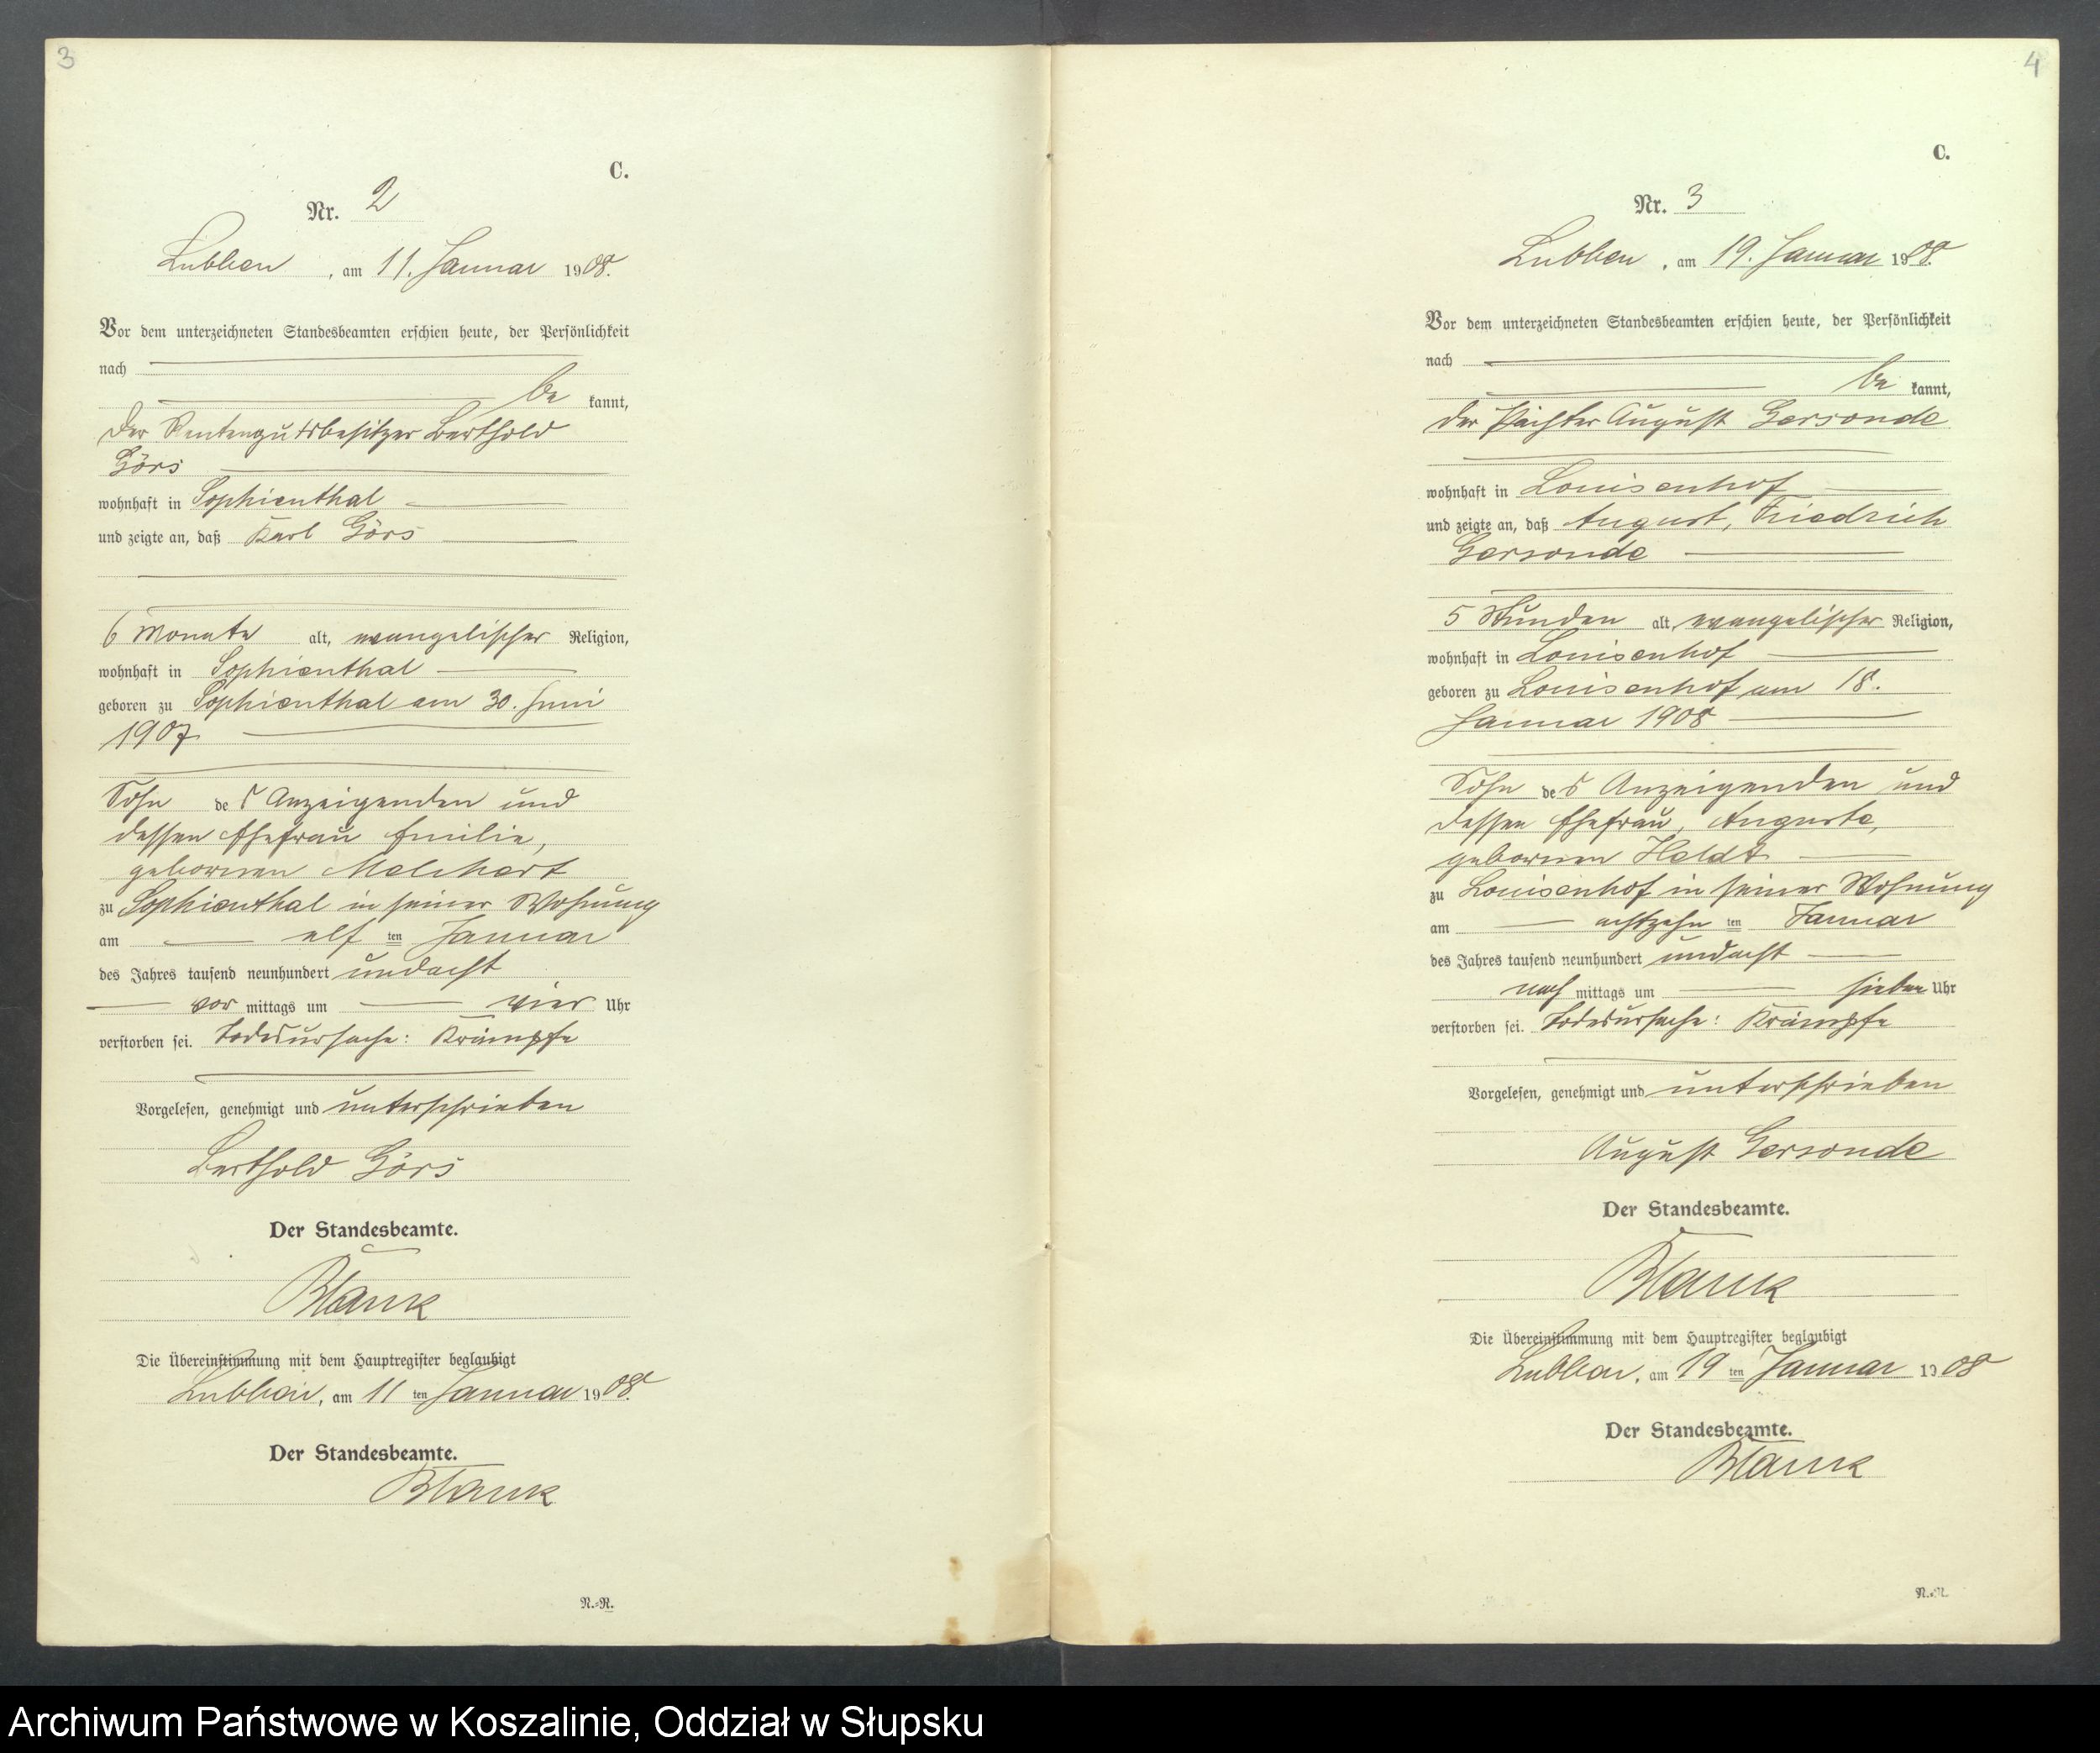 3
C.
Nr. 2
Lubben, am 11. Januar 1908.
Vor dem unterzeichneten Standesbeamten erschien heute, der Persönlichkeit
nach
be kannt,
der Rentengutsbesitzer Berthold
Görs
wohnhaft in Sophienthal
und zeigte an, daß Karl Görs
6 Monate alt, evangelischer Religion,
wohnhaft in Sophienthal
geboren zu Sophienthal am 30. Juni
1907
Sohn des Anzeigenden und
dessen Ehefrau Emilie,
gebornen Melchert
zu Sophienthal in seiner Wohnung
am elf ten Januar
des Jahres tausend neunhundert undacht
vor mittags um vier Uhr
verstorben sei. Todesursache: Krämpfe
Vorgelesen, genehmigt und unterschrieben
Berthold Görs
Der Standesbeamte.
Blank
Die Übereinstimmung mit dem Hauptregister beglaubigt
Lubben, am 11 ten Januar 1908.
Der Standesbeamte.
Blank
N.-R.
4
C.
Nr. 3
Lubben, am 19. Januar 1908.
Vor dem unterzeichneten Standesbeamten erschien heute, der Persönlichkeit
nach
be kannt,
der Pächter August Gersonde
wohnhaft in Louisenhof
und zeigte an, daß August, Friedrich
Gersonde
5 Stunden alt, evangelischer Religion,
wohnhaft in Louisenhof
geboren zu Louisenhof am 18.
Januar 1908
Sohn des Anzeigenden und
dessen Ehefrau, Auguste,
gebornen Heldt
zu Louisenhof in seiner Wohnung
am achtzehn ten Januar
des Jahres tausend neunhundert undacht
nach mittags um sieben Uhr
verstorben sei. Todesursache: Krämpfe
Vorgelesen, genehmigt und unterschrieben
August Gersonde
Der Standesbeamte.
Blank
Die Übereinstimmung mit dem Hauptregister beglaubigt
Lubben, am 19 ten Januar 1908
Der Standesbeamte.
Blank
N.-R.
Archiwum Państwowe w Koszalinie, Oddział w Słupsku